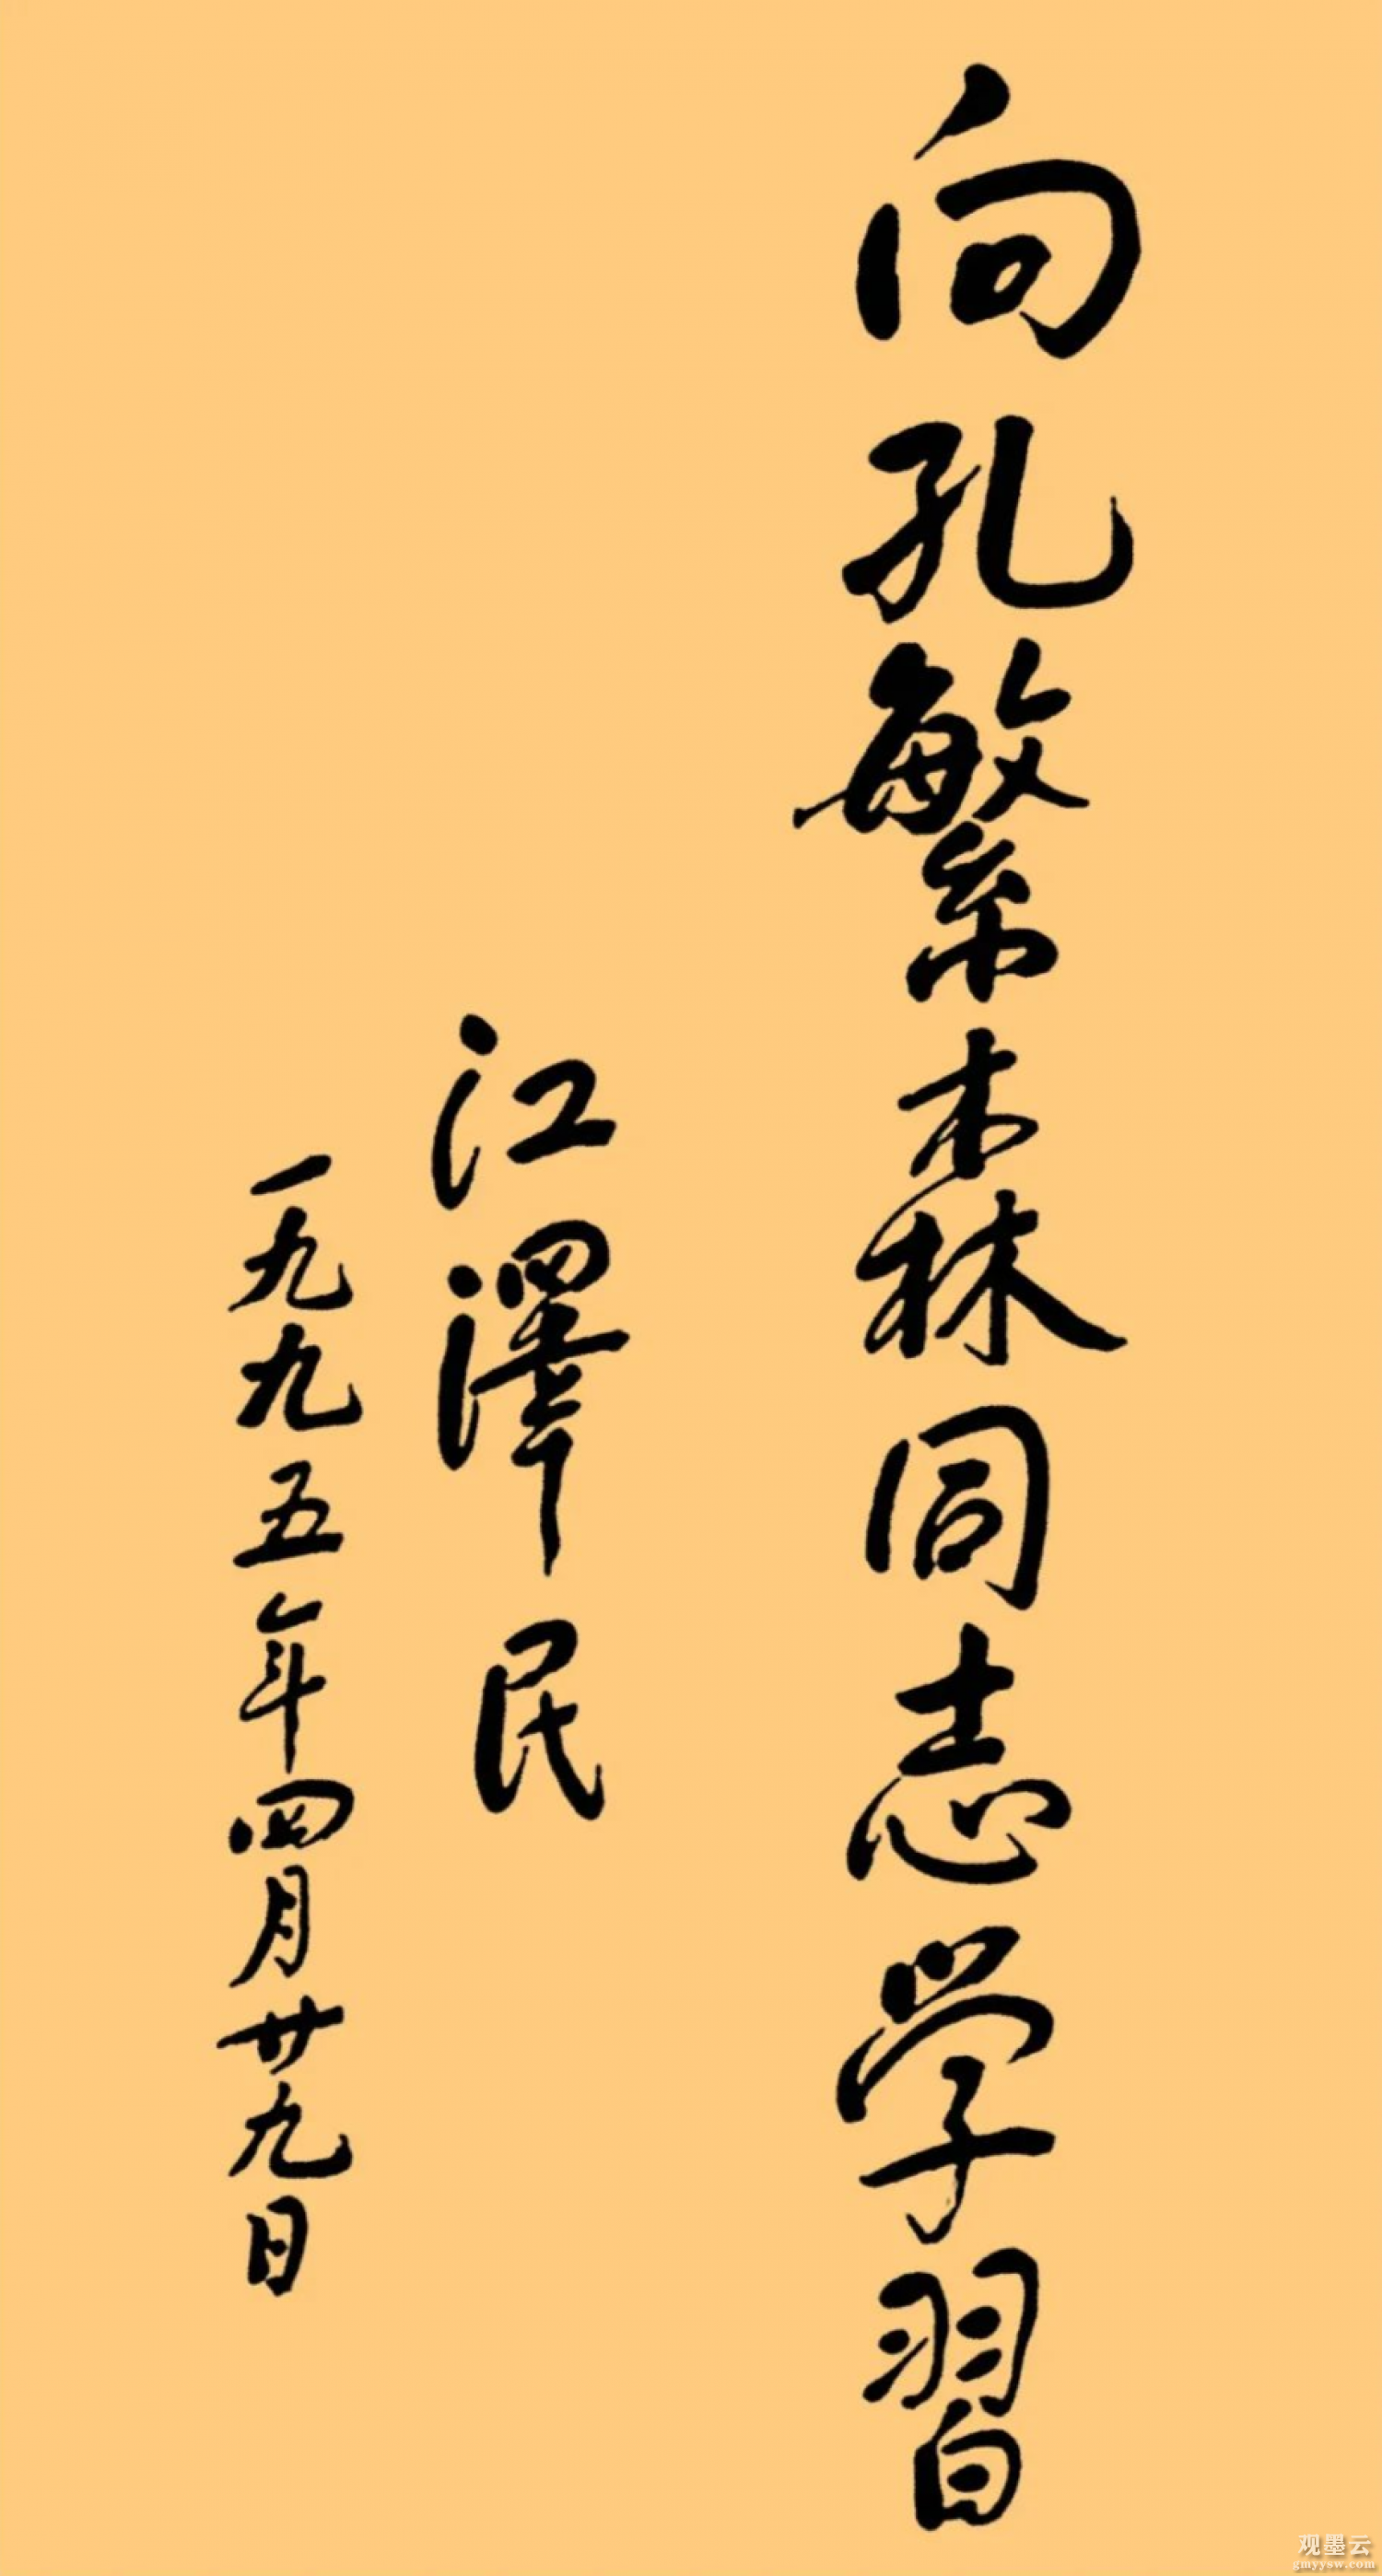 向孔繁森同志学習
江澤民
一九九五年四月廿九日
观墨云
gmyysw.com